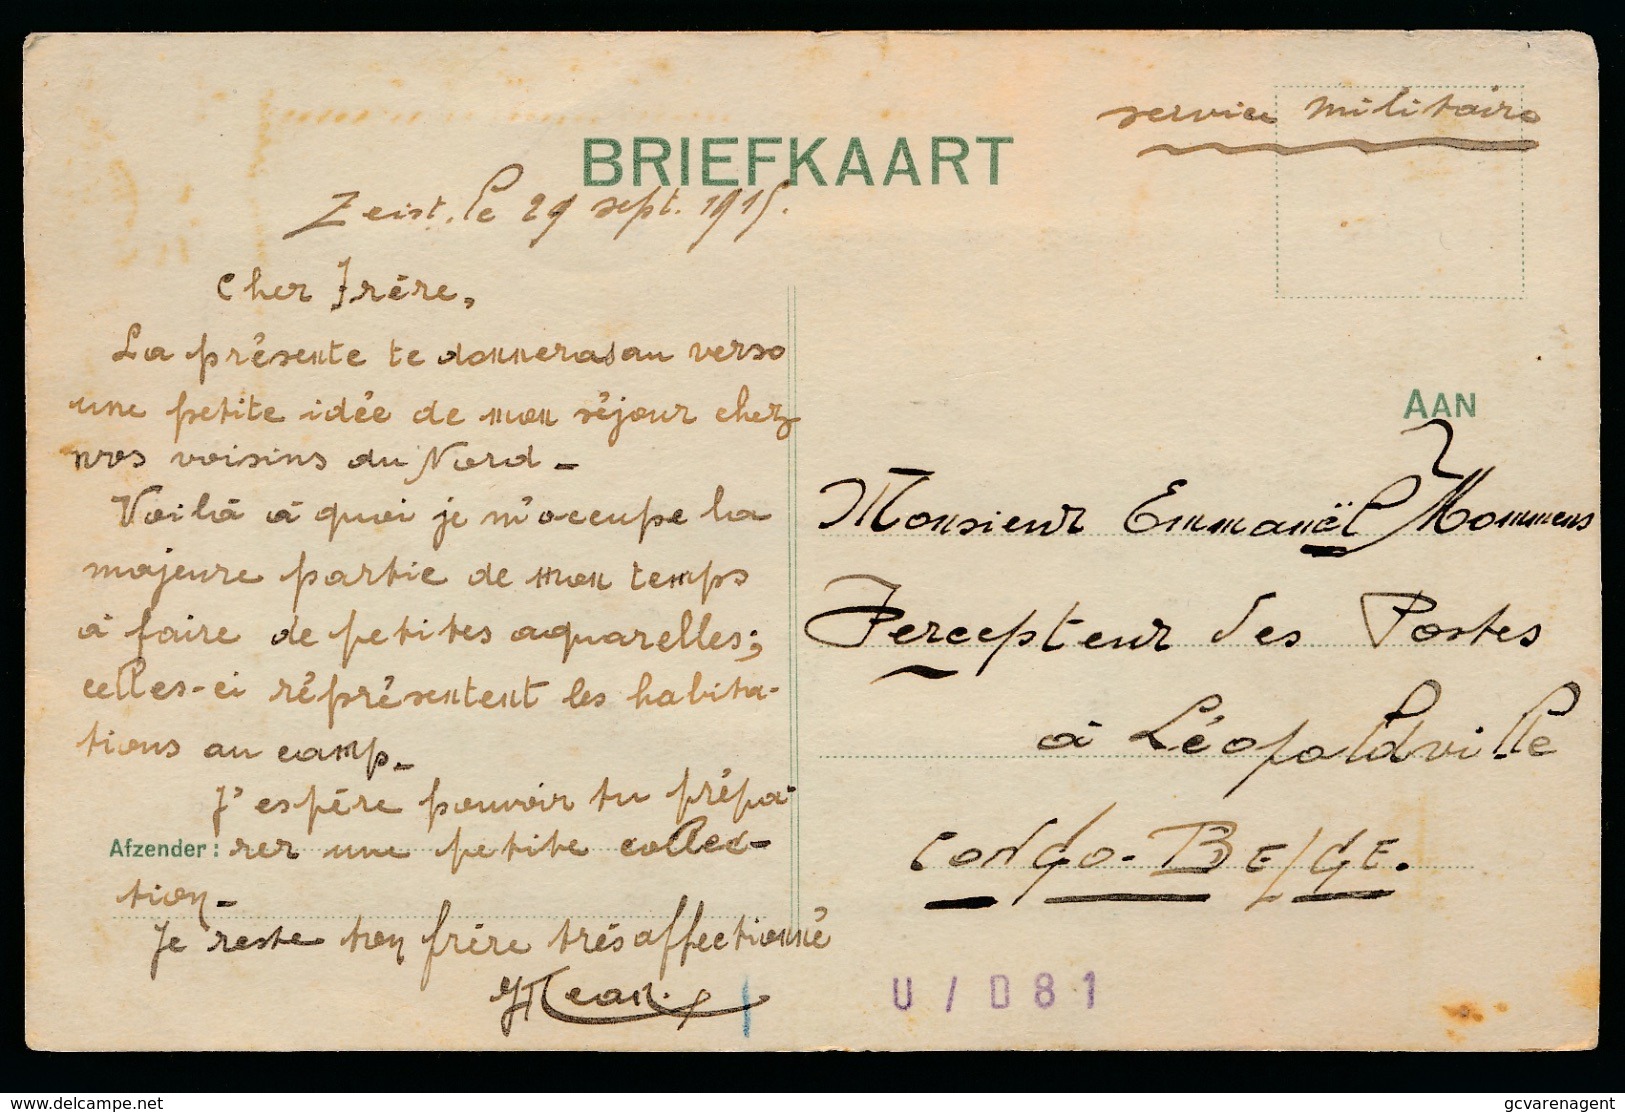 service militaire
BRIEFKAART
Zeist, le 29 sept. 1915.
Cher Frère,
La présente te donneras au verso
une petite idée de mon séjour chez
nos voisins du Nord -
Voilà à quoi je m'occupe la
majeure partie de mon temps
à faire de petites aquarelles;
celles-ci réprésentent les habita-
tions au camp -
J'espère pouvoir tu prépa-
rer une petite collec-
tion -
Je reste ton frère très affectionné
Jean.
Afzender:
AAN
Monsieur Emmanuël Mommens
Percepteur des Postes
à Léopoldville
CONGO-BELGE.
U / D 8 1
www.delcampe.net
gcvarenagent